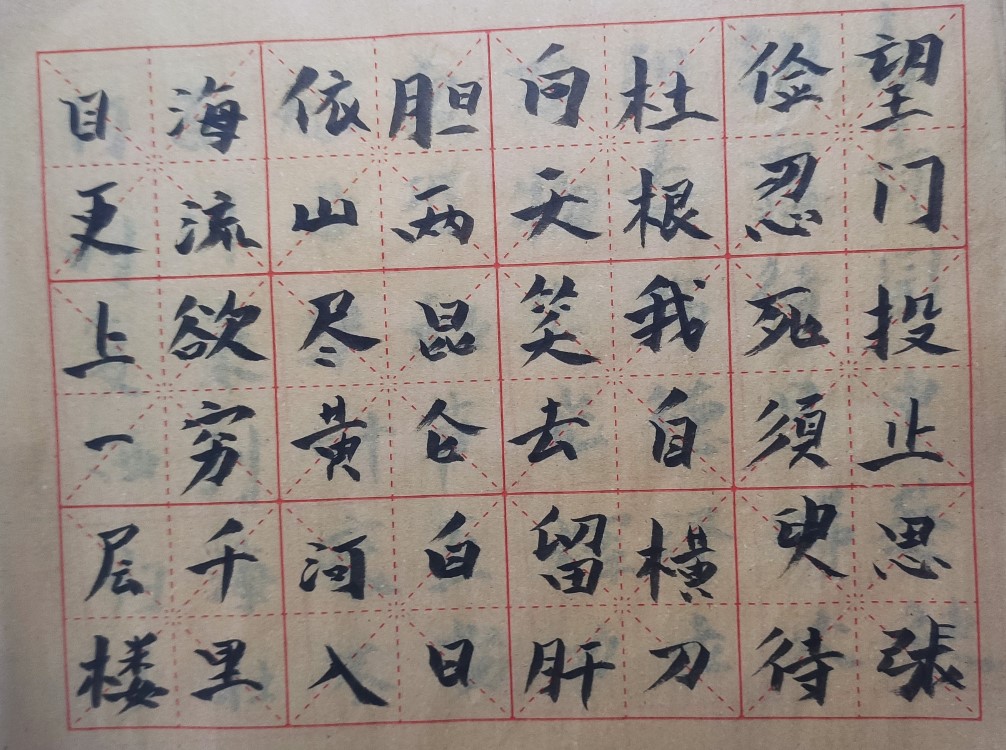 望门投止思张
俭忍死须臾待
杜根我自横刀
向天笑去留肝
胆两昆仑白日
依山尽黄河入
海流欲穷千里
目更上一层楼